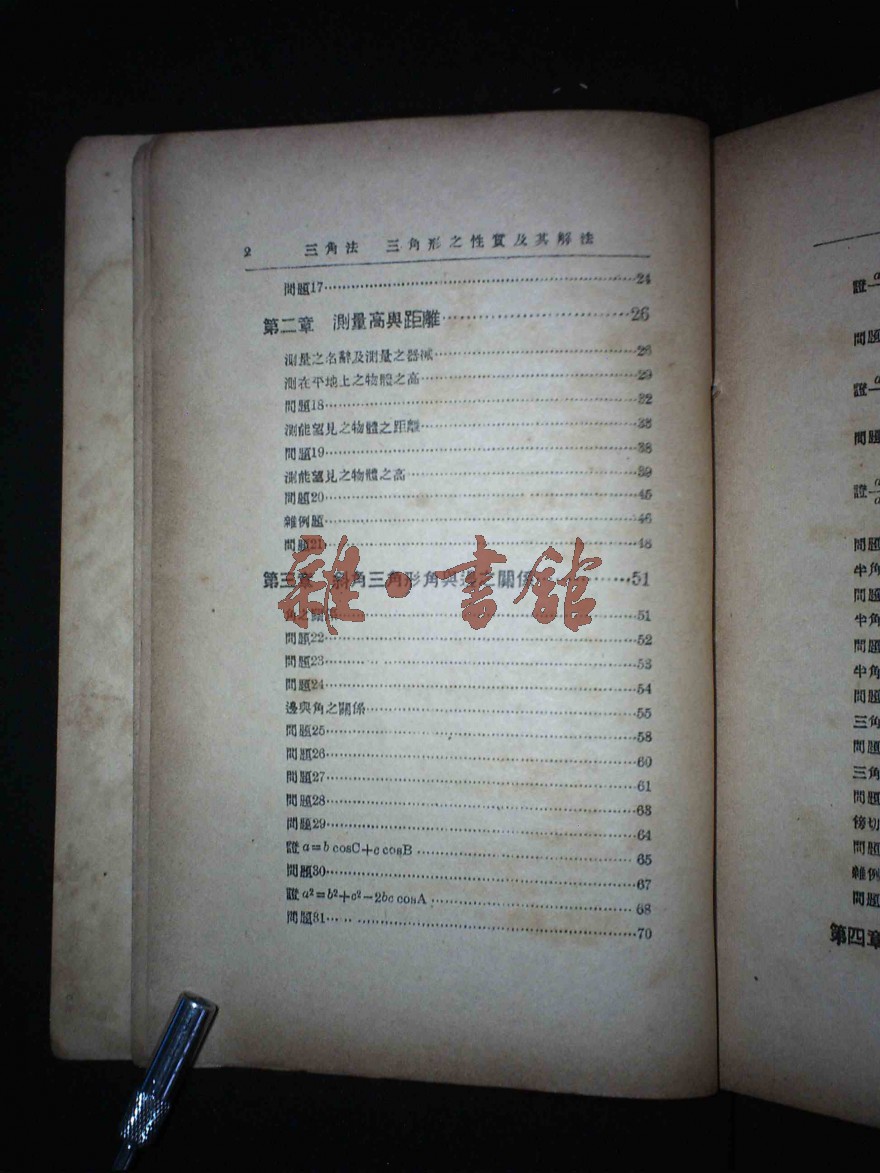 2 三角法 三角形之性質及其解法
問題17……24
第二章 測量高與距離……26
測量之名辭及測量之器械……26
測在平地上之物體之高……29
問題18……32
測能望見之物體之距離……33
問題19……38
測能望見之物體之高……39
問題20……45
雜例題……46
問題21……48
第三章 斜角三角形角與邊之關係……51
角之關係……51
問題22……52
問題23……53
問題24……54
邊與角之關係……55
問題25……58
問題26……60
問題27……61
問題28……63
問題29……64
證 a=b cosC+c cosB……65
問題30……67
證 a²=b²+c²−2bc cosA……68
問題31……70
雜·書館
證 a
問題
證 a
問題
證 a
a
問題
半角
問題
半角
問題
半角
問題
三角
問題
三角
問題
傍切
問題
雜例
問題
第四章